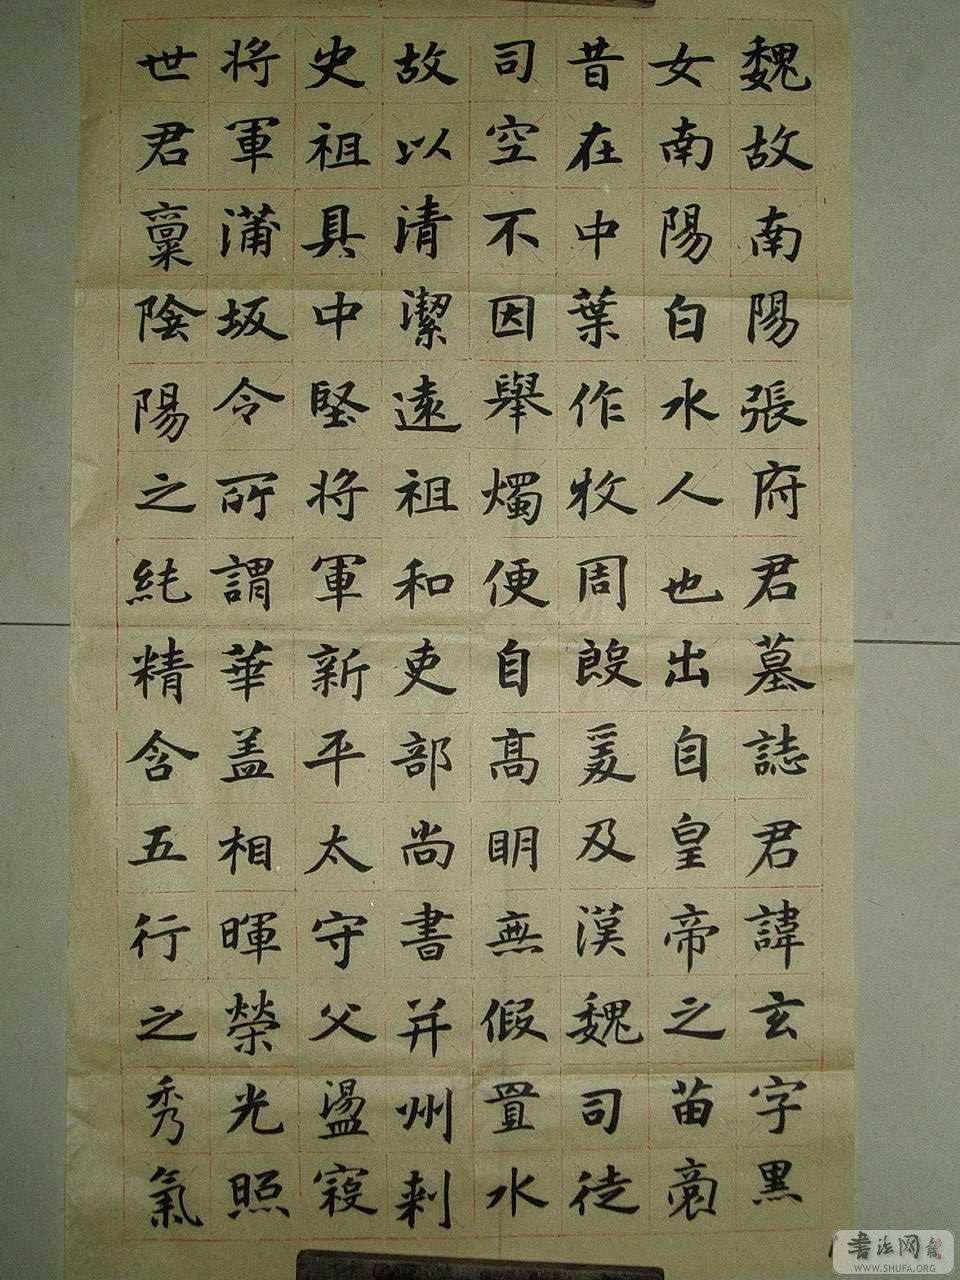 魏故南陽張府君墓誌君諱玄字黑
女南陽白水人也出自皇帝之苗裔
昔在中葉作牧周殷爰及漢魏司徒
司空不因舉燭便自高明無假置水
故以清潔遠祖和吏部尚書并州刺
史祖具中堅將軍新平太守父盪寇
將軍蒲坂令所謂華蓋相暉榮光照
世君稟陰陽之純精含五行之秀氣
書法网
WWW.SHUFA.ORG